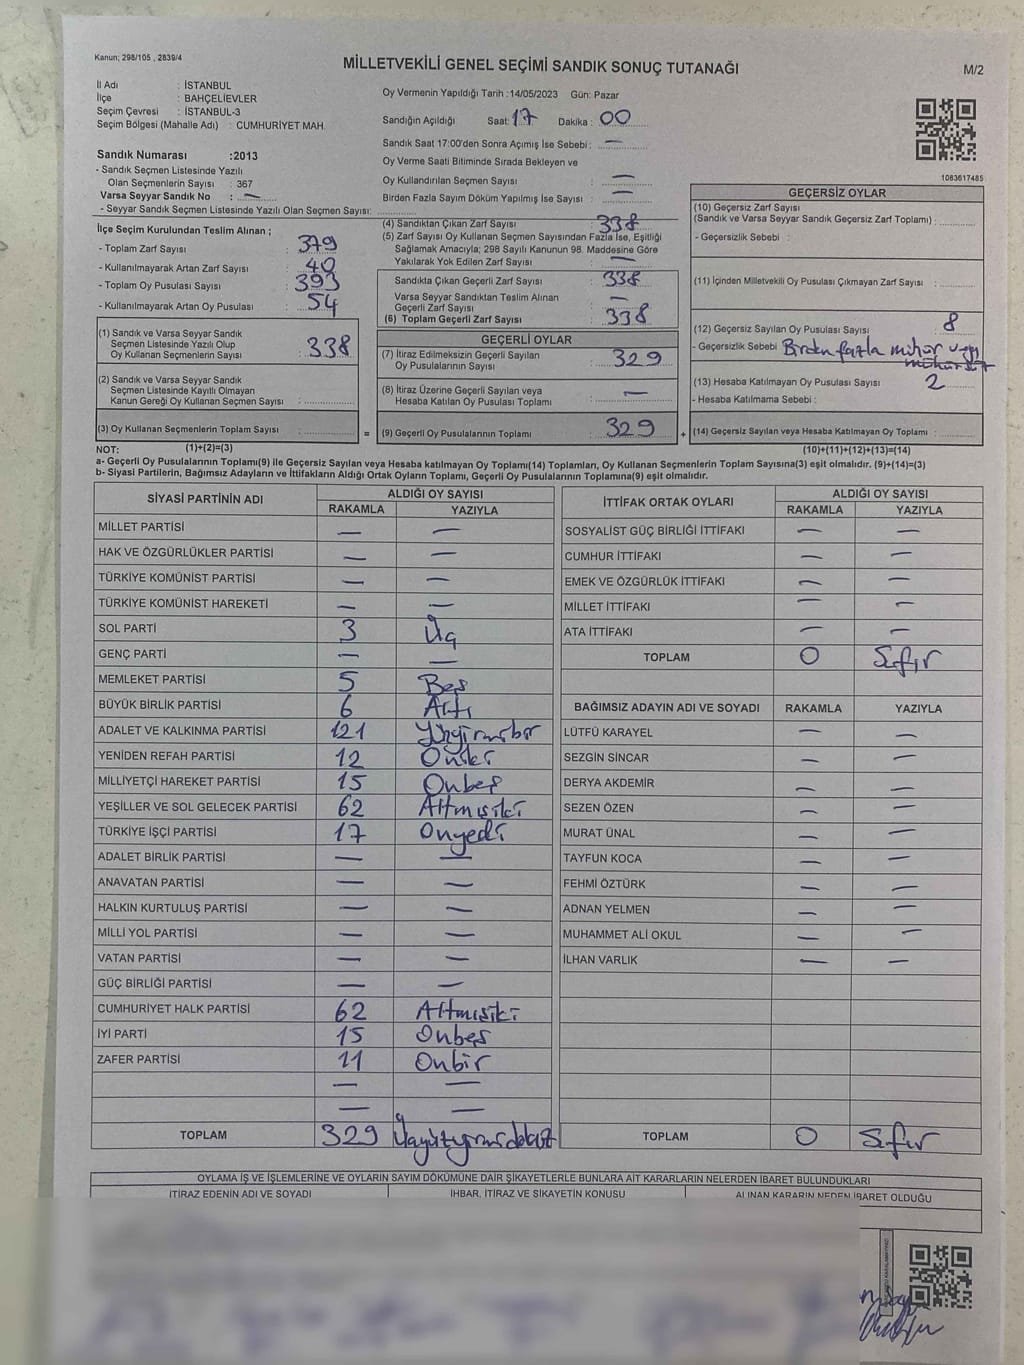 Kanun; 298/105 , 2839/4
MİLLETVEKİLİ GENEL SEÇİMİ SANDIK SONUÇ TUTANAĞI
M/2
İl Adı : İSTANBUL
İlçe : BAHÇELİEVLER
Seçim Çevresi : İSTANBUL-3
Seçim Bölgesi (Mahalle Adı) : CUMHURİYET MAH.
Oy Vermenin Yapıldığı Tarih :14/05/2023 Gün: Pazar
Sandığın Açıldığı Saat: 17 Dakika : 00
Sandık Saat 17:00'den Sonra Açımış İse Sebebi : —
Oy Verme Saati Bitiminde Sırada Bekleyen ve
Oy Kullandırılan Seçmen Sayısı : —
Birden Fazla Sayım Döküm Yapılmış İse Sayısı : —
1083617485
Sandık Numarası :2013
- Sandık Seçmen Listesinde Yazılı
Olan Seçmenlerin Sayısı : 367
Varsa Seyyar Sandık No : —
- Seyyar Sandık Seçmen Listesinde Yazılı Olan Seçmen Sayısı:
İlçe Seçim Kurulundan Teslim Alınan ;
- Toplam Zarf Sayısı : 379
- Kullanılmayarak Artan Zarf Sayısı : 40
- Toplam Oy Pusulası Sayısı : 393
- Kullanılmayarak Artan Oy Pusulası : 54
(1) Sandık ve Varsa Seyyar Sandık
Seçmen Listesinde Yazılı Olup
Oy Kullanan Seçmenlerin Sayısı : 338
(2) Sandık ve Varsa Seyyar Sandık
Seçmen Listesinde Kayıtlı Olmayan
Kanun Gereği Oy Kullanan Seçmen Sayısı :
(3) Oy Kullanan Seçmenlerin Toplam Sayısı :
(4) Sandıktan Çıkan Zarf Sayısı : 338
(5) Zarf Sayısı Oy Kullanan Seçmen Sayısından Fazla İse, Eşitliği
Sağlamak Amacıyla; 298 Sayılı Kanunun 98. Maddesine Göre
Yakılarak Yok Edilen Zarf Sayısı : —
Sandıkta Çıkan Geçerli Zarf Sayısı : 338
Varsa Seyyar Sandıktan Teslim Alınan
Geçerli Zarf Sayısı : —
(6) Toplam Geçerli Zarf Sayısı : 338
GEÇERLİ OYLAR
(7) İtiraz Edilmeksizin Geçerli Sayılan
Oy Pusulalarının Sayısı : 329
(8) İtiraz Üzerine Geçerli Sayılan veya
Hesaba Katılan Oy Pusulası Toplamı : —
= (9) Geçerli Oy Pusulalarının Toplamı : 329 +
GEÇERSİZ OYLAR
(10) Geçersiz Zarf Sayısı
(Sandık ve Varsa Seyyar Sandık Geçersiz Zarf Toplamı) :
- Geçersizlik Sebebi :
(11) İçinden Milletvekili Oy Pusulası Çıkmayan Zarf Sayısı :
(12) Geçersiz Sayılan Oy Pusulası Sayısı : 8
- Geçersizlik Sebebi : Birden fazla mühür veya
(13) Hesaba Katılmayan Oy Pusulası Sayısı : 2
- Hesaba Katılmama Sebebi :
(14) Geçersiz Sayılan veya Hesaba Katılmayan Oy Toplamı :
NOT: (1)+(2)=(3) (10)+(11)+(12)+(13)=(14)
a- Geçerli Oy Pusulalarının Toplamı(9) ile Geçersiz Sayılan veya Hesaba katılmayan Oy Toplamı(14) Toplamları, Oy Kullanan Seçmenlerin Toplam Sayısına(3) eşit olmalıdır. (9)+(14)=(3)
b- Siyasi Partilerin, Bağımsız Adayların ve İttifakların Aldığı Ortak Oyların Toplamı, Geçerli Oy Pusulalarının Toplamına(9) eşit olmalıdır.
SİYASİ PARTİNİN ADI ALDIĞI OY SAYISI
RAKAMLA YAZIYLA
MİLLET PARTİSİ — —
HAK VE ÖZGÜRLÜKLER PARTİSİ — —
TÜRKİYE KOMÜNİST PARTİSİ — —
TÜRKİYE KOMÜNİST HAREKETİ — —
SOL PARTİ 3 Üç
GENÇ PARTİ — —
MEMLEKET PARTİSİ 5 Beş
BÜYÜK BİRLİK PARTİSİ 6 Altı
ADALET VE KALKINMA PARTİSİ 121 Yüzyirmibir
YENİDEN REFAH PARTİSİ 12 Oniki
MİLLİYETÇİ HAREKET PARTİSİ 15 Onbeş
YEŞİLLER VE SOL GELECEK PARTİSİ 62 Altmışiki
TÜRKİYE İŞÇİ PARTİSİ 17 Onyedi
ADALET BİRLİK PARTİSİ — —
ANAVATAN PARTİSİ — —
HALKIN KURTULUŞ PARTİSİ — —
MİLLİ YOL PARTİSİ — —
VATAN PARTİSİ — —
GÜÇ BİRLİĞİ PARTİSİ — —
CUMHURİYET HALK PARTİSİ 62 Altmışiki
İYİ PARTİ 15 Onbeş
ZAFER PARTİSİ 11 Onbir
— —
— —
TOPLAM 329
İTTİFAK ORTAK OYLARI ALDIĞI OY SAYISI
RAKAMLA YAZIYLA
SOSYALİST GÜÇ BİRLİĞİ İTTİFAKI — —
CUMHUR İTTİFAKI — —
EMEK VE ÖZGÜRLÜK İTTİFAKI — —
MİLLET İTTİFAKI — —
ATA İTTİFAKI — —
TOPLAM 0 Sıfır
BAĞIMSIZ ADAYIN ADI VE SOYADI RAKAMLA YAZIYLA
LÜTFÜ KARAYEL — —
SEZGİN SİNCAR — —
DERYA AKDEMİR — —
SEZEN ÖZEN — —
MURAT ÜNAL — —
TAYFUN KOCA — —
FEHMİ ÖZTÜRK — —
ADNAN YELMEN — —
MUHAMMET ALİ OKUL — —
İLHAN VARLIK — —
TOPLAM 0 Sıfır
OYLAMA İŞ VE İŞLEMLERİNE VE OYLARIN SAYIM DÖKÜMÜNE DAİR ŞİKAYETLERLE BUNLARA AİT KARARLARIN NELERDEN İBARET BULUNDUKLARI
İTİRAZ EDENİN ADI VE SOYADI İHBAR, İTİRAZ VE ŞİKAYETİN KONUSU ALINAN KARARIN NEDEN İBARET OLDUĞU